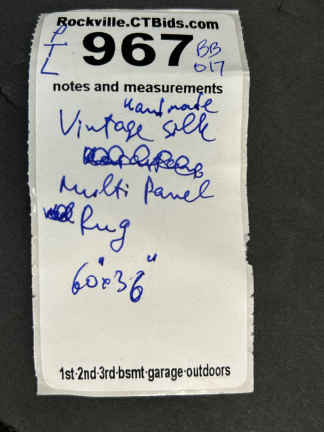 Rockville.CTBids.com
P/L 967 BB 017
notes and measurements
Handmade
Vintage silk
Multi Panel
Rug
60"x36"
1st·2nd·3rd·bsmt·garage·outdoors